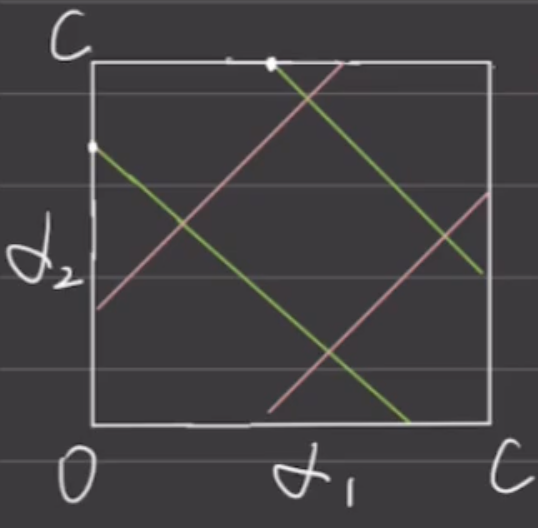 C
α₂
O α₁ C